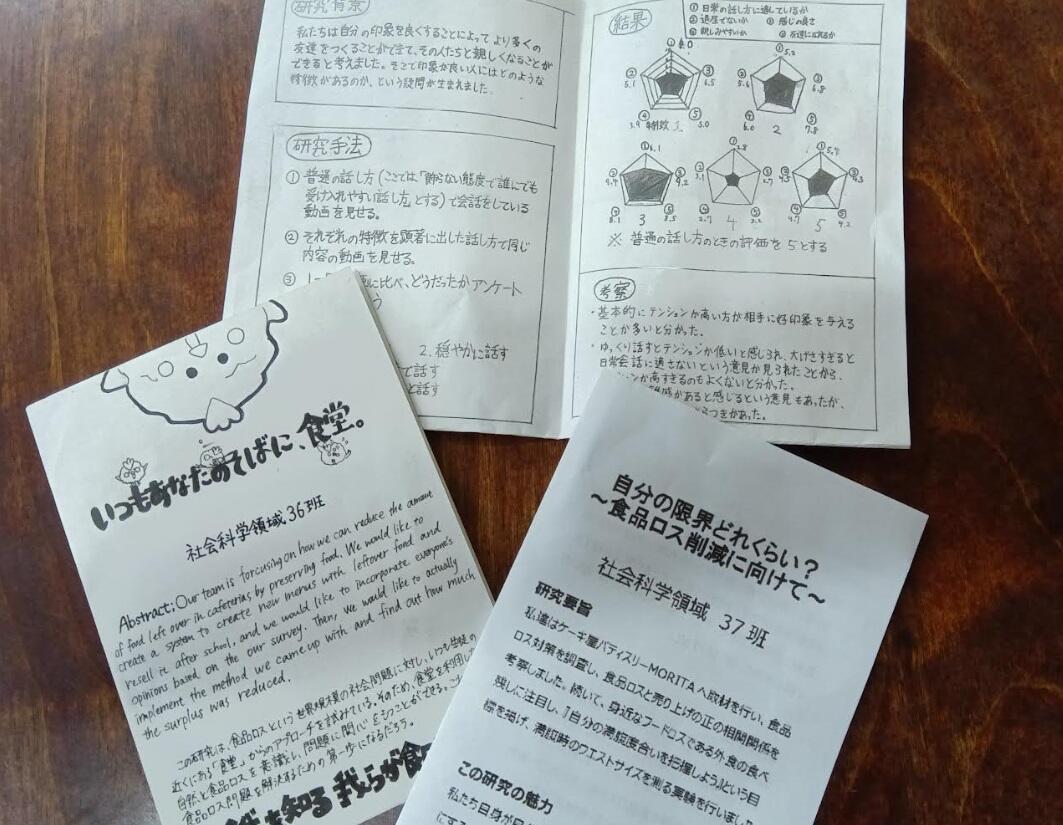 研究背景
私たちは自分の印象を良くすることによってより多くの
友達をつくることができて、その人たちと親しくなることが
できると考えました。そこで印象が良い人にはどのような
特徴があるのか、という疑問が生まれました。
研究手法
① 普通の話し方(ここでは、「飾らない態度で誰にでも
受け入れやすい話し方」とする)で会話をしている
動画を見せる。
② それぞれの特徴を顕著に出した話し方で同じ
内容の動画を見せる。
③
に比べ、どうだったかアンケート
2. 穏やかに話す
で話す
と話す
結果
① 日常の話し方に適しているか
② 退屈でないか ③ 感じの良さ
④ 親しみやすいか ⑤ 友達になれるか
① ② 5.1 ③ 6.5 ④ 3.9 ⑤ 5.0
特徴 1
① 5.2 ② 5.6 ③ 6.8 ④ 6.0 ⑤ 7.8
2
① 6.1 ② ③ 9.2 ④ 8.1 ⑤ 8.5
3
① 2.8 ② ③ ④ ⑤
4
① ② ③ ④ ⑤
5
※ 普通の話し方のときの評価を5とする
考察
・基本的にテンションが高い方が相手に好印象を与える
ことが多いと分かった。
・ゆっくり話すとテンションが低いと感じられ、大げさすぎると
日常会話に適さないという意見が見られたことから、
ションが高すぎるのもよくないと分かった。
があると感じるという意見もあったが、
つきがあった。
いつもあなたのそばに、食堂。
社会科学領域36班
Abstract: Our team is forcusing on how we can reduce the amount
of food left over in cafeterias by preserving food. We would like to
create a system to create new menus with leftover food and
resell it after school, and we would like to incorporate everyone's
opinions based on the our survey. Then, we would like to actually
implement the method we came up with and find out how much
the surplus was reduced.
この研究は、食品ロスという世界規模の社会問題に対し、いつも生徒の
近くにある「食堂」からのアプローチを試みている。そのため、食堂を利用した
自然と食品ロスを意識し、問題に関心をもつことができること
食品ロス問題を解決するための第一歩になるだろう。
を知る 我らが食
自分の限界どれくらい?
~食品ロス削減に向けて~
社会科学領域 37班
研究要旨
私達はケーキ屋パティスリーMORITAへ取材を行い、食品
ロス対策を調査し、食品ロスと売り上げの正の相関関係を
考察しました。続いて、身近なフードロスである外食の食べ
残しに注目し、「自分の満腹度合いを把握しよう」という目
標を掲げ、満腹時のウエストサイズを測る実験を行いました
この研究の魅力
私たち自身が
にする